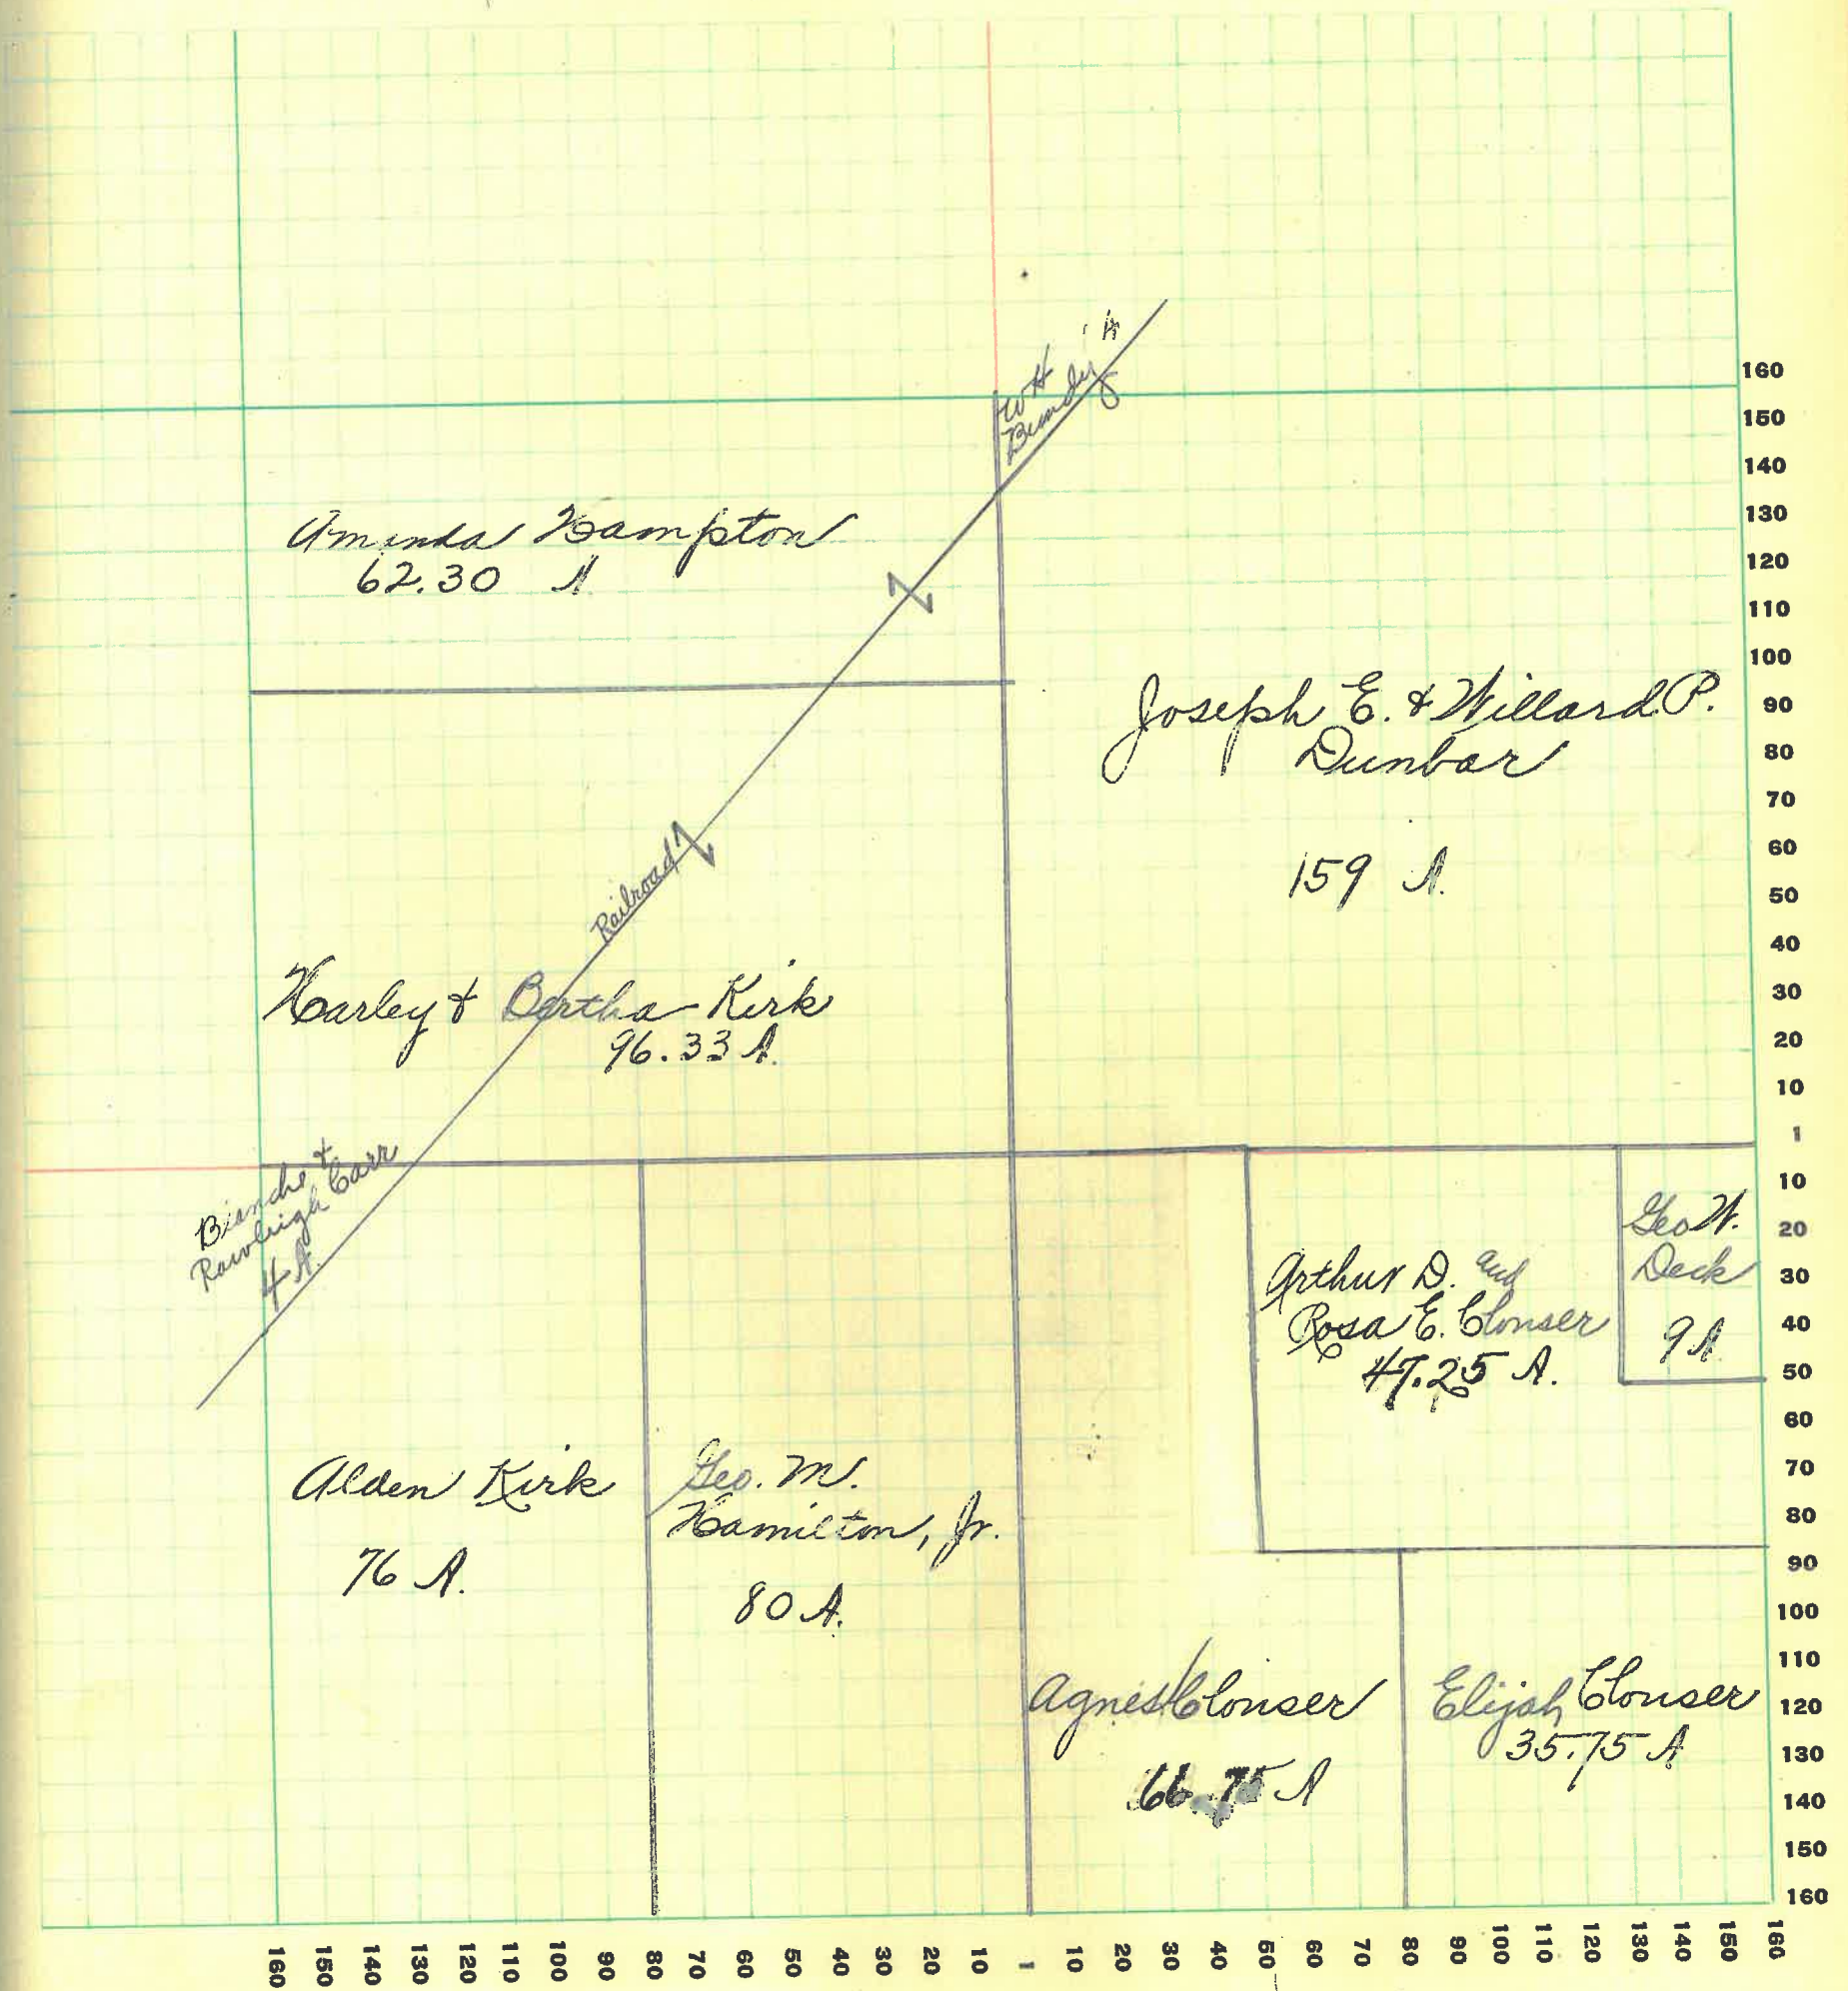 W H
Bundy
1 A
Amanda Hampton
62.30 A
Joseph E. & Willard P.
Dunbar
159 A.
Railroad
Harley & Bertha Kirk
96.33 A.
Blanche &
Rawleigh Carr
4 A.
Geo W.
Deck
9 A
Arthur D. and
Rosa E. Clouser
47.25 A.
Alden Kirk
76 A.
Geo. M.
Hamilton, Jr.
80 A.
Agnes Clouser
66.75 A
Elijah Clouser
35.75 A
160
150
140
130
120
110
100
90
80
70
60
50
40
30
20
10
1
10
20
30
40
50
60
70
80
90
100
110
120
130
140
150
160
160 150 140 130 120 110 100 90 80 70 60 50 40 30 20 10 1 10 20 30 40 50 60 70 80 90 100 110 120 130 140 150 160